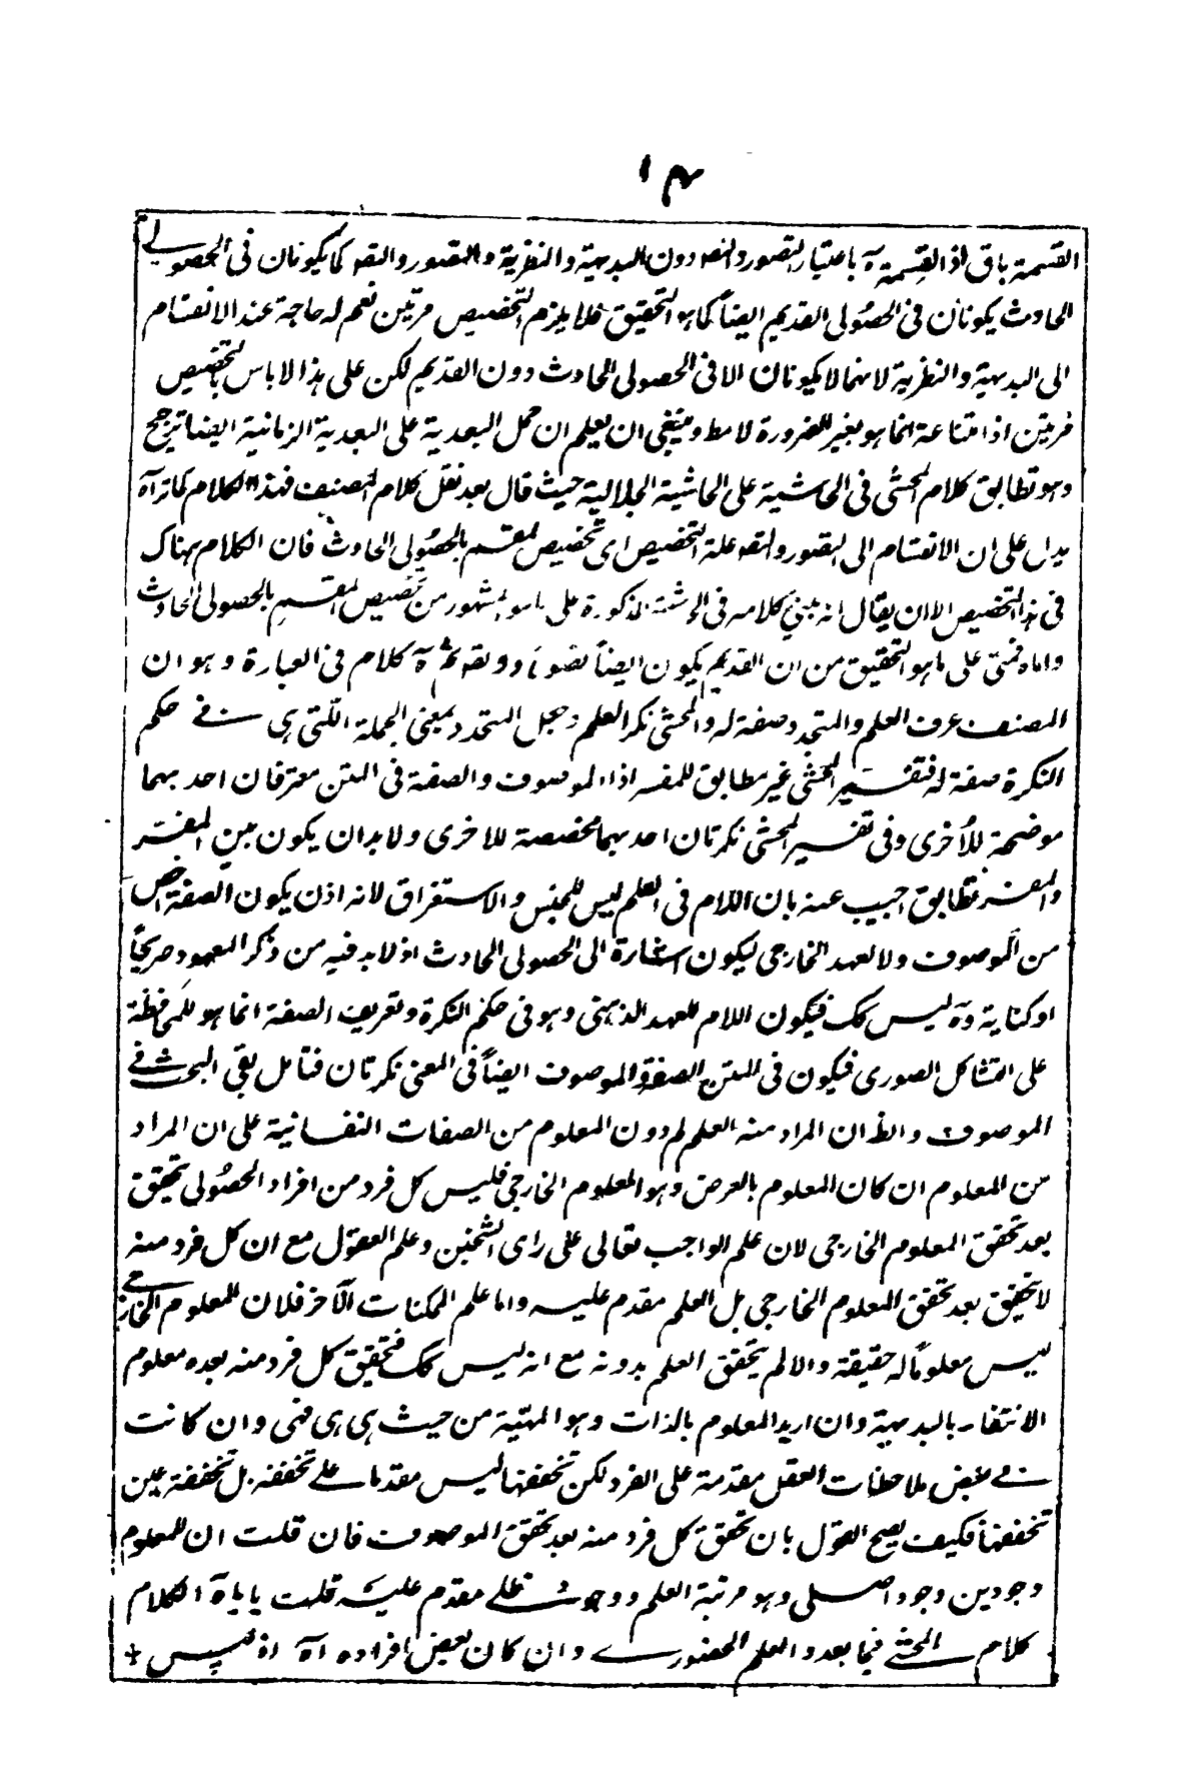 ١٣
القسمة باق اذ القسمة آه باعتبار التصور والتصو دون البديهية والنظرية والتصور والتصو كما يكونان فى الحصولي
الحادث يكونان فى الحصولى القديم ايضاً كما هو التحقيق فلا يلزم التخصيص مرتين نعم له حاجة عند الانقسام
الى البديهية والنظرية لانهما لا يكونان الا فى الحصولى الحادث دون القديم لكن على هذا لا باس بالتخصيص
مرتين اذ امتناعة انما هو بغير الضرورة لا مط وينبغى ان يعلم ان حمل البعدية على البعدية الزمانية ايضا ترجيح
وهو تطابق كلام المحشى فى الحاشية على الحاشية الجلالية حيث قال بعد نقل كلام المصنف فهذا الكلام كما تراه
يدل على ان الانقسام الى التصور والتصو علة التخصيص اى تخصيص المقسم بالحصولى الحادث فان الكلام هناك
فى هذا التخصيص الا ان يقال انه بنى كلامه فى الحاشية المذكورة على ما هو المشهور من تخصيص المقسم بالحصولى الحادث
واما ه فمبنى على ما هو التحقيق من ان القديم يكون ايضاً تصورا وتصو ثم آه كلام فى العبارة وهو ان
المصنف عرف العلم والمتجدد صفة له والمحشى نكر العلم وجعل المتجدد بمعنى الجملة اللتى هى فى حكم
النكرة صفة له فتفسير المحشى غير مطابق للمفسر اذ الموصوف والصفة فى المتن معرفان احدهما
موضحة للأخرى وفى تفسير المحشى نكرتان احدهما مخصصة للاخرى ولا بد ان يكون بين المفسر
والمفسر تطابق اجيب عنه بان اللام فى العلم ليس للجنس والاستغراق لانه اذن يكون الصفة اخص
من الموصوف ولا لعهد الخارجى ليكون اشارة الى الحصولى الحادث اذ لا بد فيه من ذكر المعهود صريحاً
او كناية وآه ليس كك فيكون اللام للعهد الذهنى وهو فى حكم النكرة وتعريف الصفة انما هو للمحافظة
على التشاكل الصورى فيكون فى المتن الصفة والموصوف ايضاً فى المعنى نكرتان فتامل بقى البحث فى
الموصوف والظ ان المراد منه العلم لم دون المعلوم من الصفات النفسانية على ان المراد
من المعلوم ان كان المعلوم بالعرض وهو المعلوم الخارجى فليس كل فرد من افراد الحصولى تحقق
بعد تحقق المعلوم الخارجى لان علم الواجب تعالى على راى الشيخين وعلم العقول مع ان كل فرد منه
لا يتحقق بعد تحقق المعلوم الخارجى بل العلم مقدم عليه واما علم الممكنات الآخر فلان للمعلوم الخارجى
ليس معلوماً له حقيقة والا لم يتحقق العلم بدونه مع انه ليس كك فتحقق كل فرد منه بعده معلوم
الانتفاء بالبديهية وان اريد المعلوم بالذات وهو المهية من حيث هى هى فهى وان كانت
فى بعض ملاحظات العقل مقدمة على الفرد لكن تحققها ليس مقدما على تحققه بل تحققه عين
تحققها فكيف يصح القول بان تحقق كل فرد منه بعد تحقق الموصوف فان قلت ان للمعلوم
وجودين وجود اصلى وهو مرتبة العلم ووجود ظلى مقدم عليه قلت ياباه الكلام
كلام المحشى فيما بعد والعلم الحضورى وان كان بعض افراده آه اذ ليس